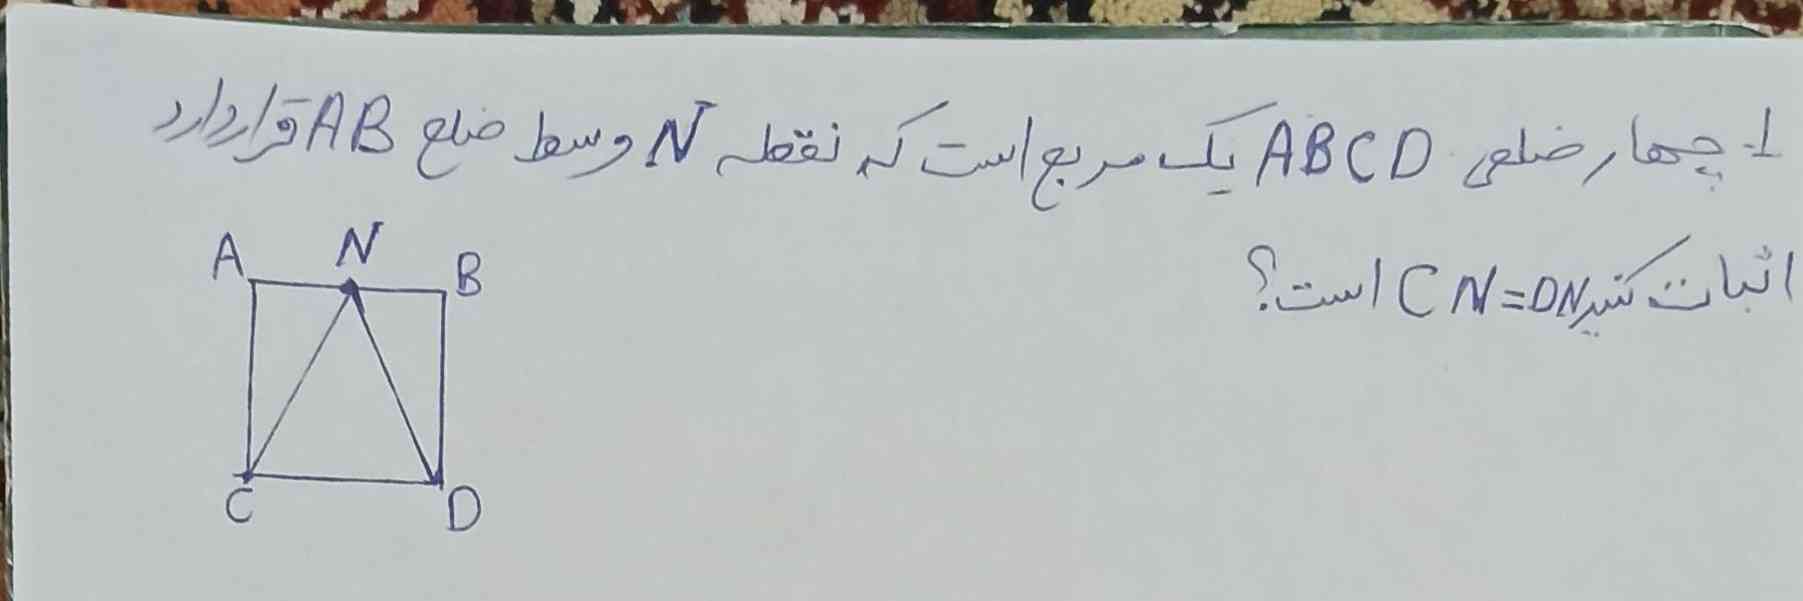 1- چهار ضلعی ABCD یک مربع است که نقطه N وسط ضلع AB قرار دارد
اثبات کنید CN=DN است؟
A N B
C D